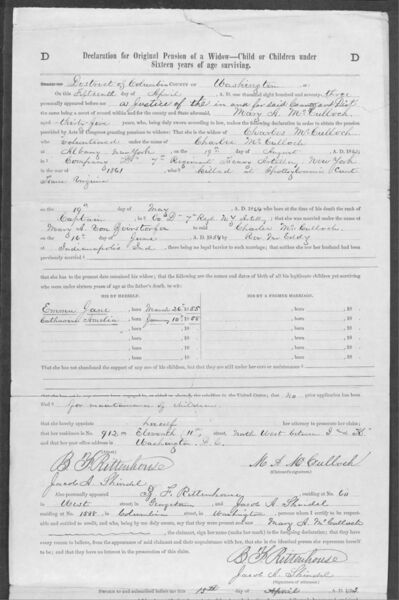 D Declaration for Original Pension of a Widow—Child or Children under D
Sixteen years of age surviving.
District of Columbia COUNTY OF Washington
On this fifteenth day of April A. D. one thousand eight hundred and seventy three
personally appeared before me a Justice of the in and for said County and Dist
the same being a court of record within and for the county and State aforesaid, Mary A. McCulloch
aged thirty-five years, who, being duly sworn according to law, makes the following declaration in order to obtain the pension
provided by Acts of Congress granting pensions to widows: That she is the widow of Charles McCulloch
who volunteered under the name of Charles McCulloch
at Albany New York on the 19th day of August A. D. 186
in Company 7th Regiment Heavy Artillery, New York
in the war of 1861 who killed at Spottsylvania Court
House Virginia
on the 19th day of May A. D. 1864 who bore at the time of his death the rank of
Captain in Co D 7th Regt N Y Artily; that she was married under the name of
Mary A. Von to said Charles McCulloch
on the 16th day of June A. D. 1854 by Rev Mr Eddy
at Indianapolis Ind there being no legal barrier to such marriage; that neither she nor her husband had been
previously married
that she has to the present date remained his widow; that the following are the names and dates of birth of all his legitimate children yet surviving
who were under sixteen years of age at the father's death, to wit:
HIS BY HERSELF. HIS BY A FORMER MARRIAGE.
Emma Jane, born March 26th 1855 , born , 18
Catharine Amelia, born January 10th 1858 , born , 18
, born , 18 , born , 18
, born , 18 , born , 18
, born , 18 , born , 18
That she has not abandoned the support of any one of his children, but that they are still under her care or maintenance
that she has not in any manner been engaged in, or aided or abetted, the rebellion in the United States; that no prior application has been
filed for maintenance of children
that she hereby appoints herself her attorney to prosecute her claim;
that her residence is No. 912 on Eleventh 11th North West between I and K
and that her post office address is Washington D. C.
B F Rittenhouse
Jacob A. Shindel
M A McCulloch
(Claimant's signature.)
Also personally appeared B. F. Rittenhouse, residing at No. 60
West street, in Georgetown and Jacob A. Shindel
residing at No. in Columbia street, in Washington, persons whom I certify to be respect-
able and entitled to credit, and who, being by me duly sworn, say that they were present and saw Mary A McCulloch
, the claimant, sign her name (make her mark) to the foregoing declaration; that they have
every reason to believe, from the appearance of said claimant and their acquaintance with her, that she is the identical person she represents herself
to be; and that they have no interest in the prosecution of this claim.
B F Rittenhouse
Jacob A. Shindel
(Signatures of witnesses.)
Sworn to and subscribed before me this 15th day of April A. D. 1873.